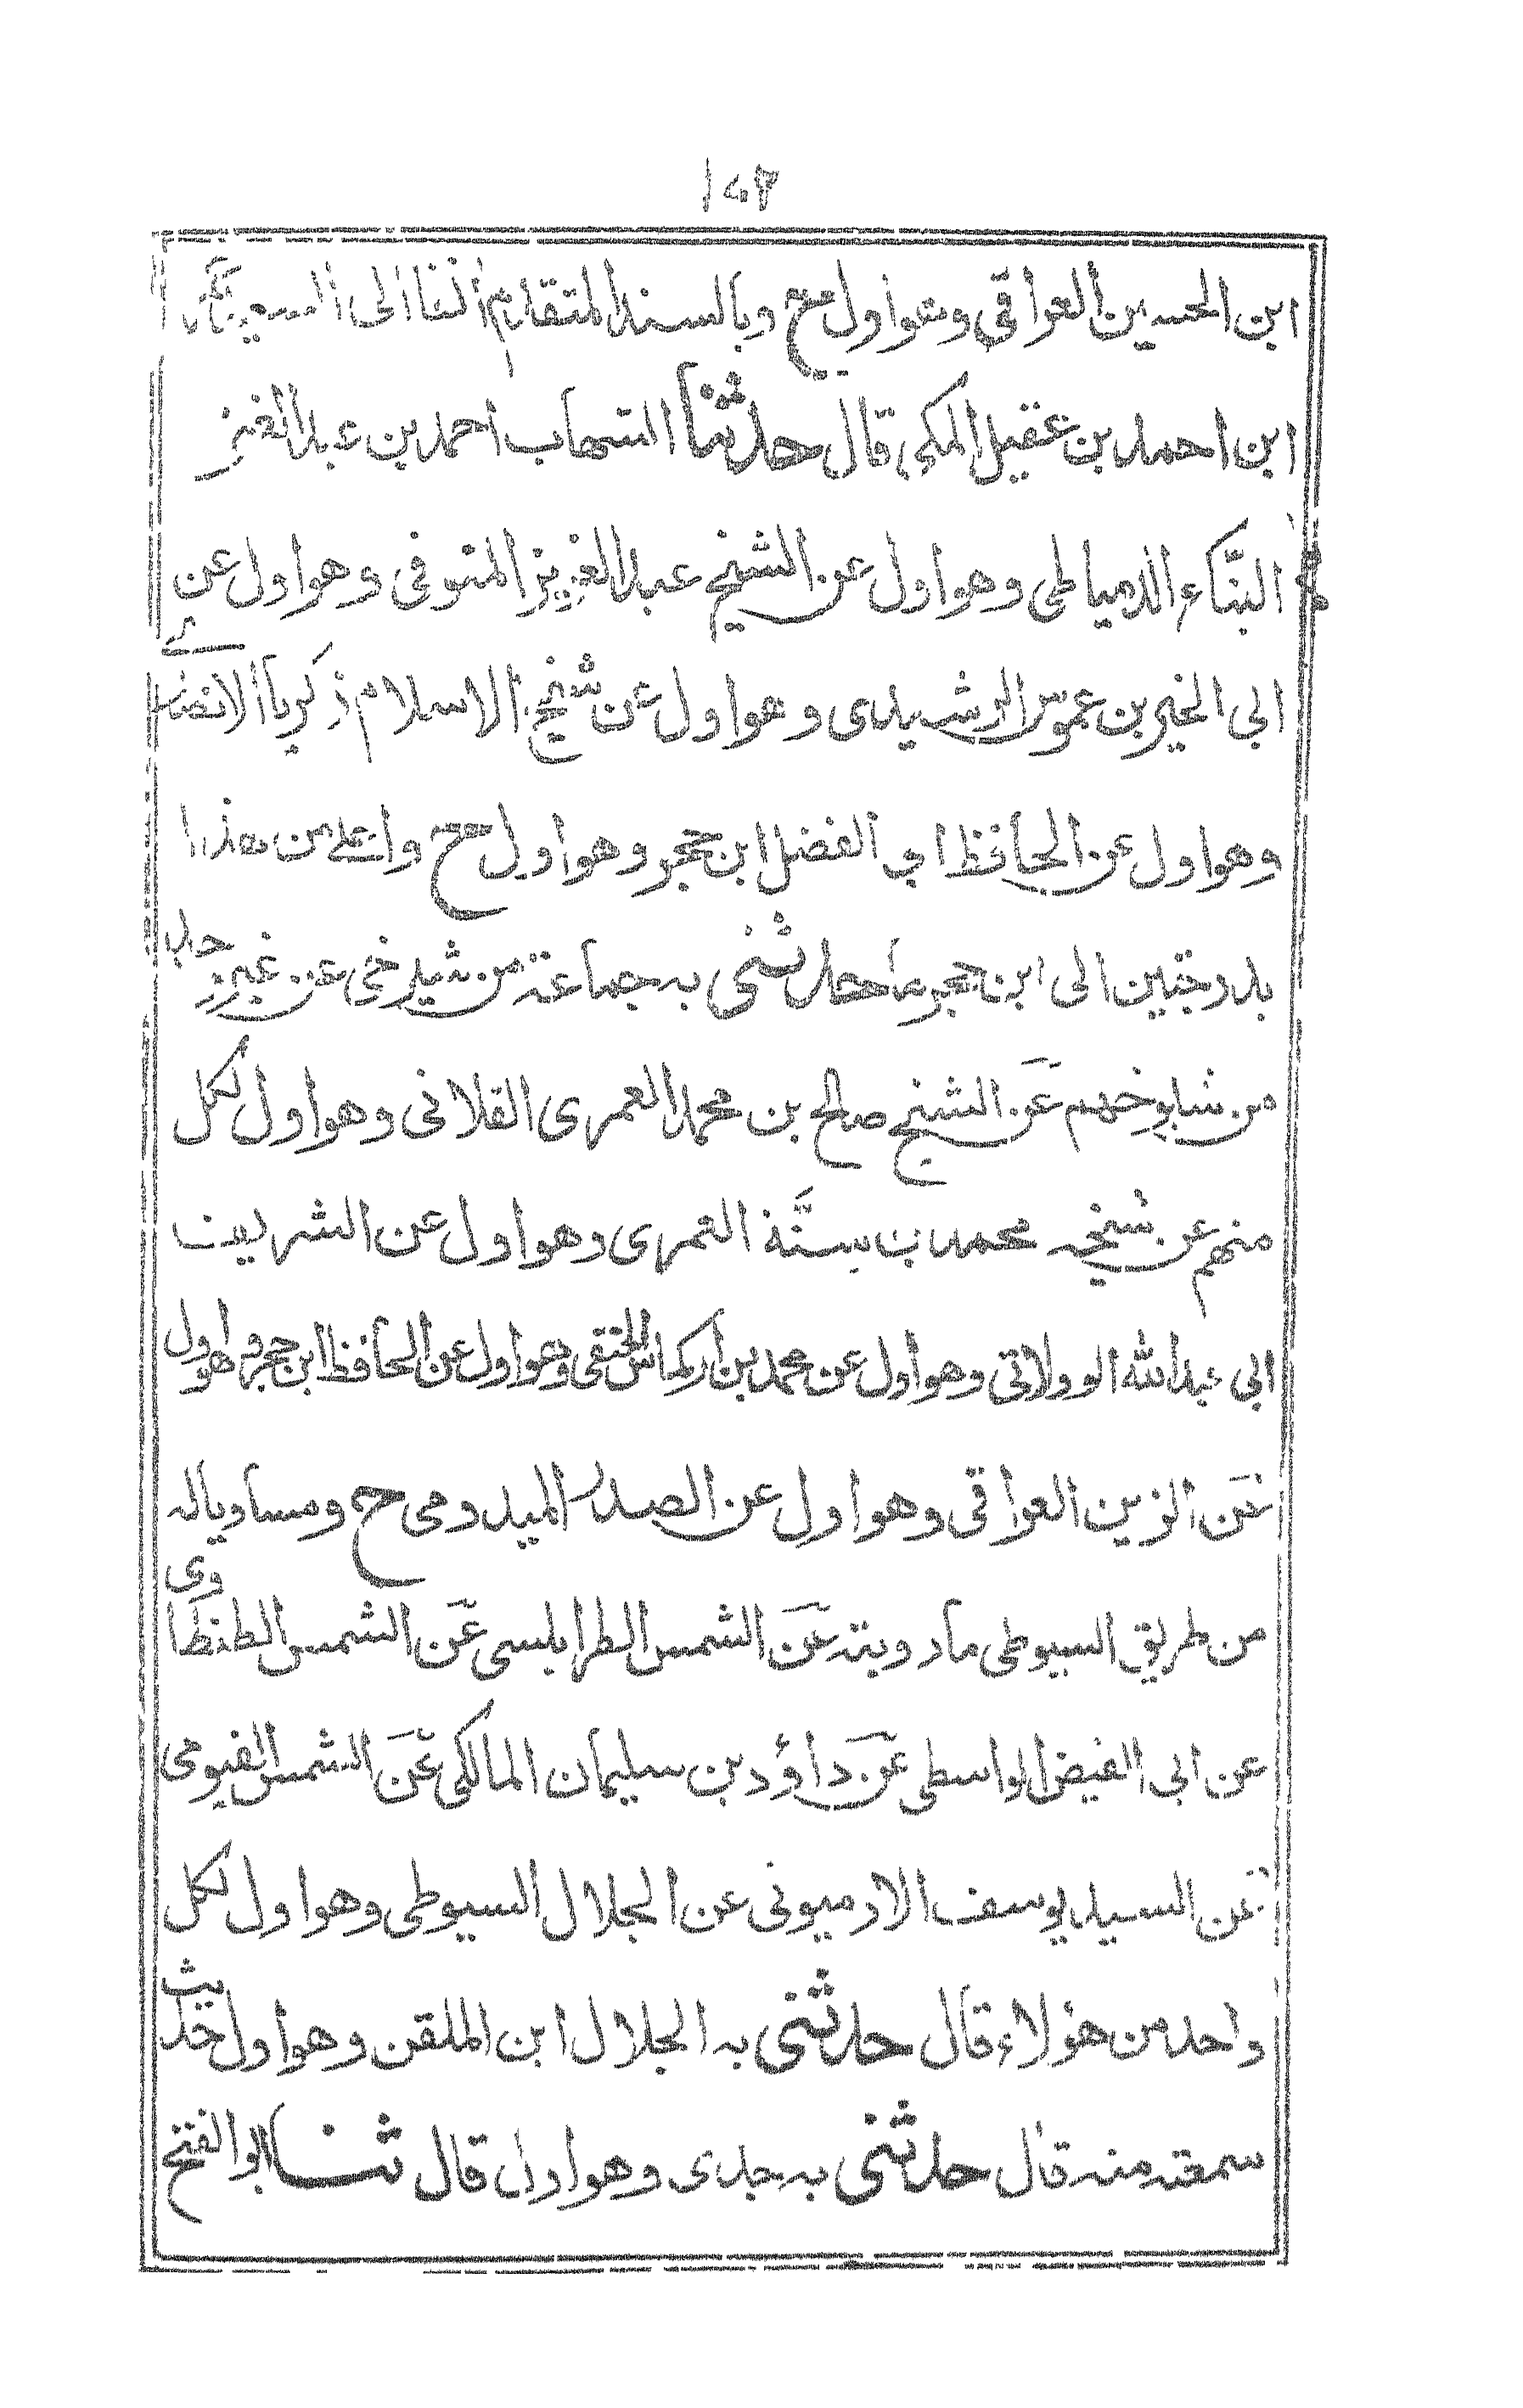 ابن الحسين العراقي وهواول ح وبالسند المتقدم انفا الى السعيد
ابن احمد بن عقيل المكي قال حدثنا الشهاب احمد بن عبد الغنى
البنّاء الدمياطي وهواول عن الشيخ عبد العزيز المنوفى وهواول عن
ابى الخير بن عموس الرشيدى وهواول عن شيخ الاسلام زكريا الانصارى
وهواول عن الحافظ ابي الفضل ابن حجر وهواول ح واعلى من هذا
بدرجتين الى ابن حجر ما حدثنى به جماعة من شيوخى عن غير واحد
من شايوخهم عن الشيخ صالح بن محمد العمرى الفلانى وهواول لكل
منهم عن شيخه محمد بن سنّة العمرى وهواول عن الشريف
ابى عبد الله الوولاتى وهواول عن محمد بن اركماس الحنفى وهواول عن الحافظ ابن حجر وهواول
عن الزين العراقى وهواول عن الصدر الميدومى ح ومساوياله
من طريق السيوطى مارويته عن الشمس الطرابلسى عن الشمس الطنطاوى
عن ابى الفيض الواسطى عن داؤد بن سليمان المالكى عن الشمس الفيومى
عن السيد يوسف الارميونى عن الجلال السيوطى وهواول لكل
واحد من هؤلاء قال حدثنى به الجلال ابن الملقن وهواول حديث
سمعته منه قال حدثنى به جدى وهواول قال ثنا ابو الفتح